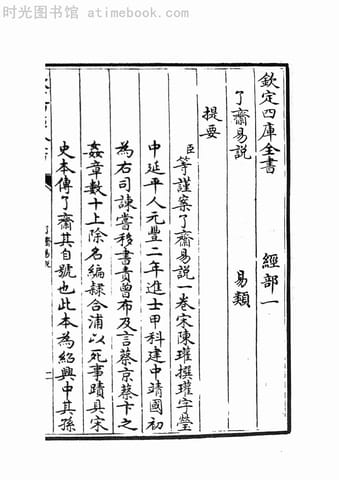 时光图书馆 - atimebook.com
欽定四庫全書 經部一
了齋易說 易類
提要
臣等謹案了齋易說一卷宋陳瓘撰瓘字瑩
中延平人元豐二年進士甲科建中靖國初
為右司諫嘗移書責曾布及言蔡京蔡卞之
姦章數十上除名編隸合浦以死事蹟具宋
史本傳了齋其自號也此本為紹興中其孫
了齋易說